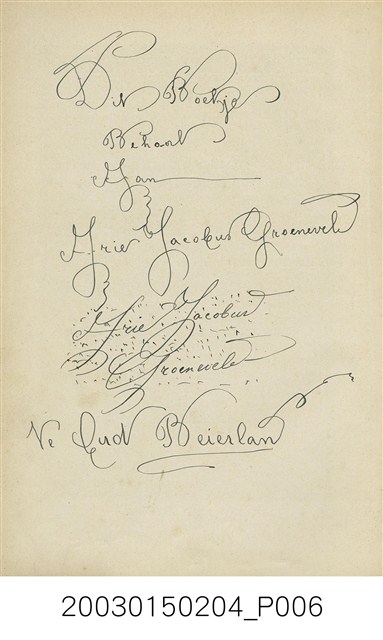 Dit Boekje
Behoort
Aan
Arie Jacobus Groeneveld
Arie Jacobus
Groeneveld
Te Oud Beierland
20030150204_P006